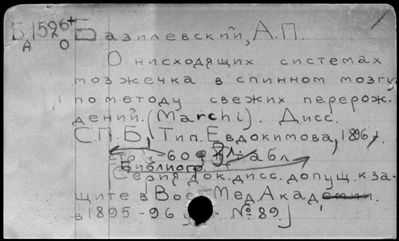 Б 1526+ Базилевский, А.П.
А О
О нисходящих системах
мозжечка в спинном мозгу
по методу свежих перерож-
дений. (Marchi). Дисс.
С.П.Б., Тип. Евдокимова, 1896 г.
60 табл.
Библиогр.
(Серия док. дисс. допущ. к за-
щите в Вое- Мед. Академии.
в 1895-96 № 89)